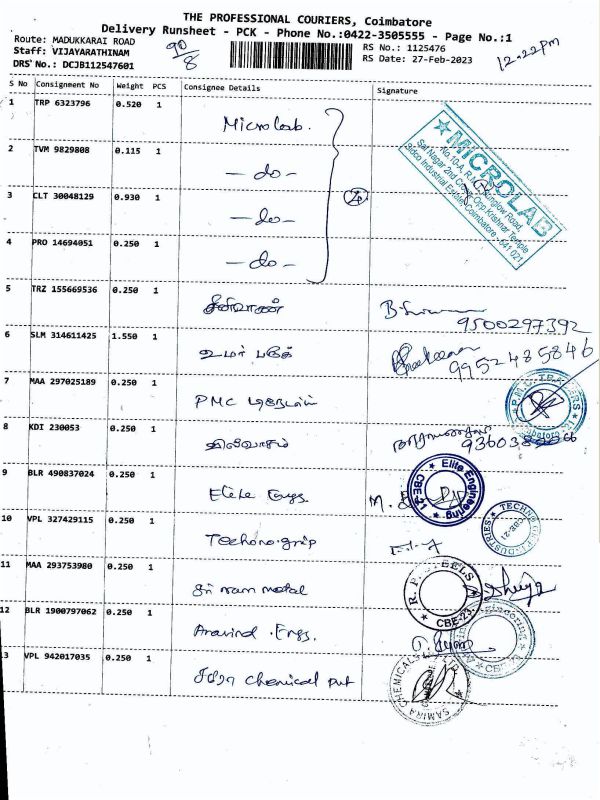 THE PROFESSIONAL COURIERS, Coimbatore
Delivery Runsheet - PCK - Phone No.:0422-3505555 - Page No.:1
Route: MADUKKARAI ROAD
Staff: VIJAYARATHINAM
DRS No.: DCJB112547601
90/8
RS No.: 1125476
RS Date: 27-Feb-2023
12-22pm
S No Consignment No Weight PCS Consignee Details Signature
1 TRP 6323796 0.520 1 Microlab.
2 TVM 9829808 0.115 1 - do -
3 CLT 30048129 0.930 1 - do -
4 PRO 14694051 0.250 1 - do -
4
MICROLAB
Sidco Industrial Estate, Coimbatore - 641 021
5 TRZ 155669536 0.250 1
9500297392
6 SLM 314611425 1.550 1
9952485846
7 MAA 297025189 0.250 1 PMC டிரேடர்ஸ்
P.M.C. TRADERS
8 KDI 230053 0.250 1
9 BLR 490837024 0.250 1 Elite Engs
Elite Engineering CBE-21
10 VPL 327429115 0.250 1 Techno grip
CBE-21
11 MAA 293753980 0.250 1 ஸ்ரீ ram metal
CBE-23
12 BLR 1900797062 0.250 1 Aravind .Engs.
CBE
13 VPL 942017035 0.250 1 chemical pvt
SAMIRA CHEMICALS